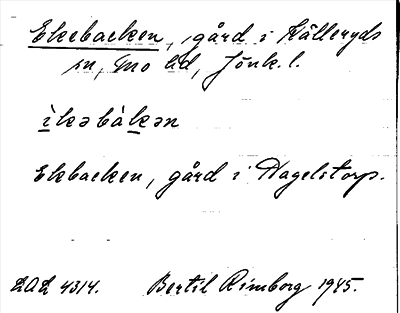 Ekebacken, gård i Kålleryds
sn, Mo hd, Jönk. l.
ìkəbàkən
Ekbacken, gård i Hagelstorp.
LAL 4314. Bertil Rimborg 1945.